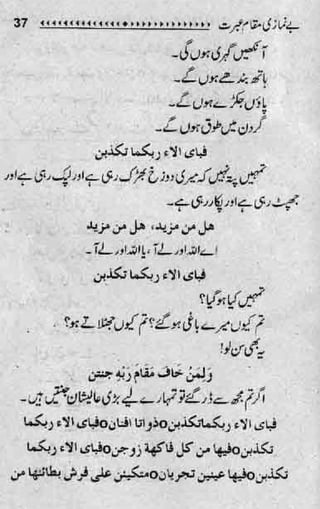 بے نمازی مقام عبرت 37
آنکھیں گہری ہوں گی۔
ہاتھ بندھے ہوں گے۔
پاؤں جکڑے ہوں گے۔
گردن میں طوق ہوں گے۔
فبای الاء ربکما تکذبن
تمہیں پتہ نہیں کہ میری دوزخ بھڑک رہی ہے اور لپک رہی ہے اور
جھپٹ رہی ہے اور پکار رہی ہے۔
هل من مزید، هل من مزید
اے اللہ اور لے آ، یا اللہ اور لے آ۔
فبای الاء ربکما تکذبن
تمہیں کیا ہو گیا؟
تم کیوں میرے باغی ہو گئے؟ تم کیوں جھٹلاتے ہو؟
یہ بھی سن لو!
وَلِمَنْ خَافَ مَقَامَ رَبِّهٖ جنتٰن
اگر تم مجھ سے ڈر گئے تو تمہارے لیے بڑی عالیشان جنتیں ہیں۔
فبای الاء ربکماتکذبنoذواتا افنانoفبای الاء ربکما
تکذبنoفیها من کل فاکهة زوجنoفبای الاء ربکما
تکذبنoفیها عینین تجریانoمتکئین علی فرش بطائنها من